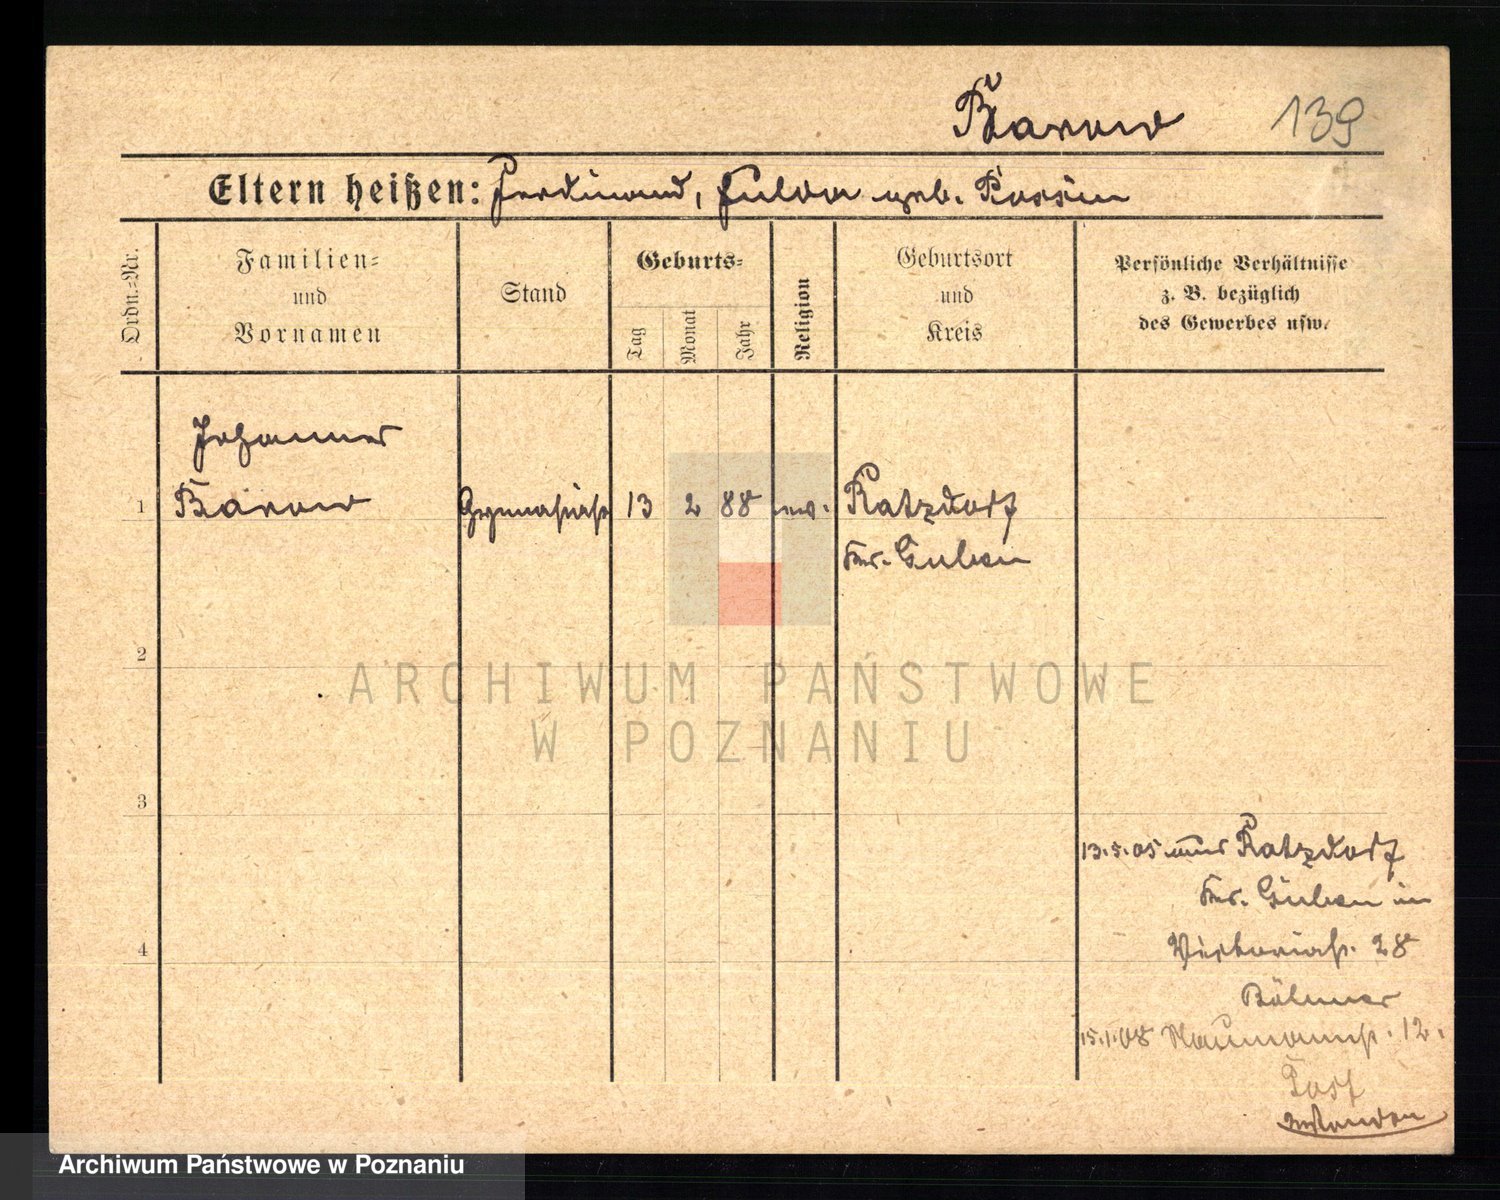 Barow 139
Eltern heißen: Ferdinand, Hulda geb. Possin
Ordn.-Nr.
Familien-
und
Vornamen
Stand
Geburts-
Tag
Monat
Jahr
Religion
Geburtsort
und
Kreis
Persönliche Verhältnisse
z. B. bezüglich
des Gewerbes usw.
Johannes
1 Barow Gymnasiast 13 2 88 ev. Ratzdorf
Kr. Guben
2
ARCHIWUM PAŃSTWOWE
W POZNANIU
3
13.5.05 aus Ratzdorf
Kr. Guben in
4 Victoriastr. 28
Böhmer
15.1.08 Naumannstr. 12.
Archiwum Państwowe w Poznaniu